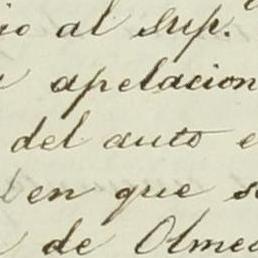 io al Sup.
apelacion
del auto e
en que s
de Olmed